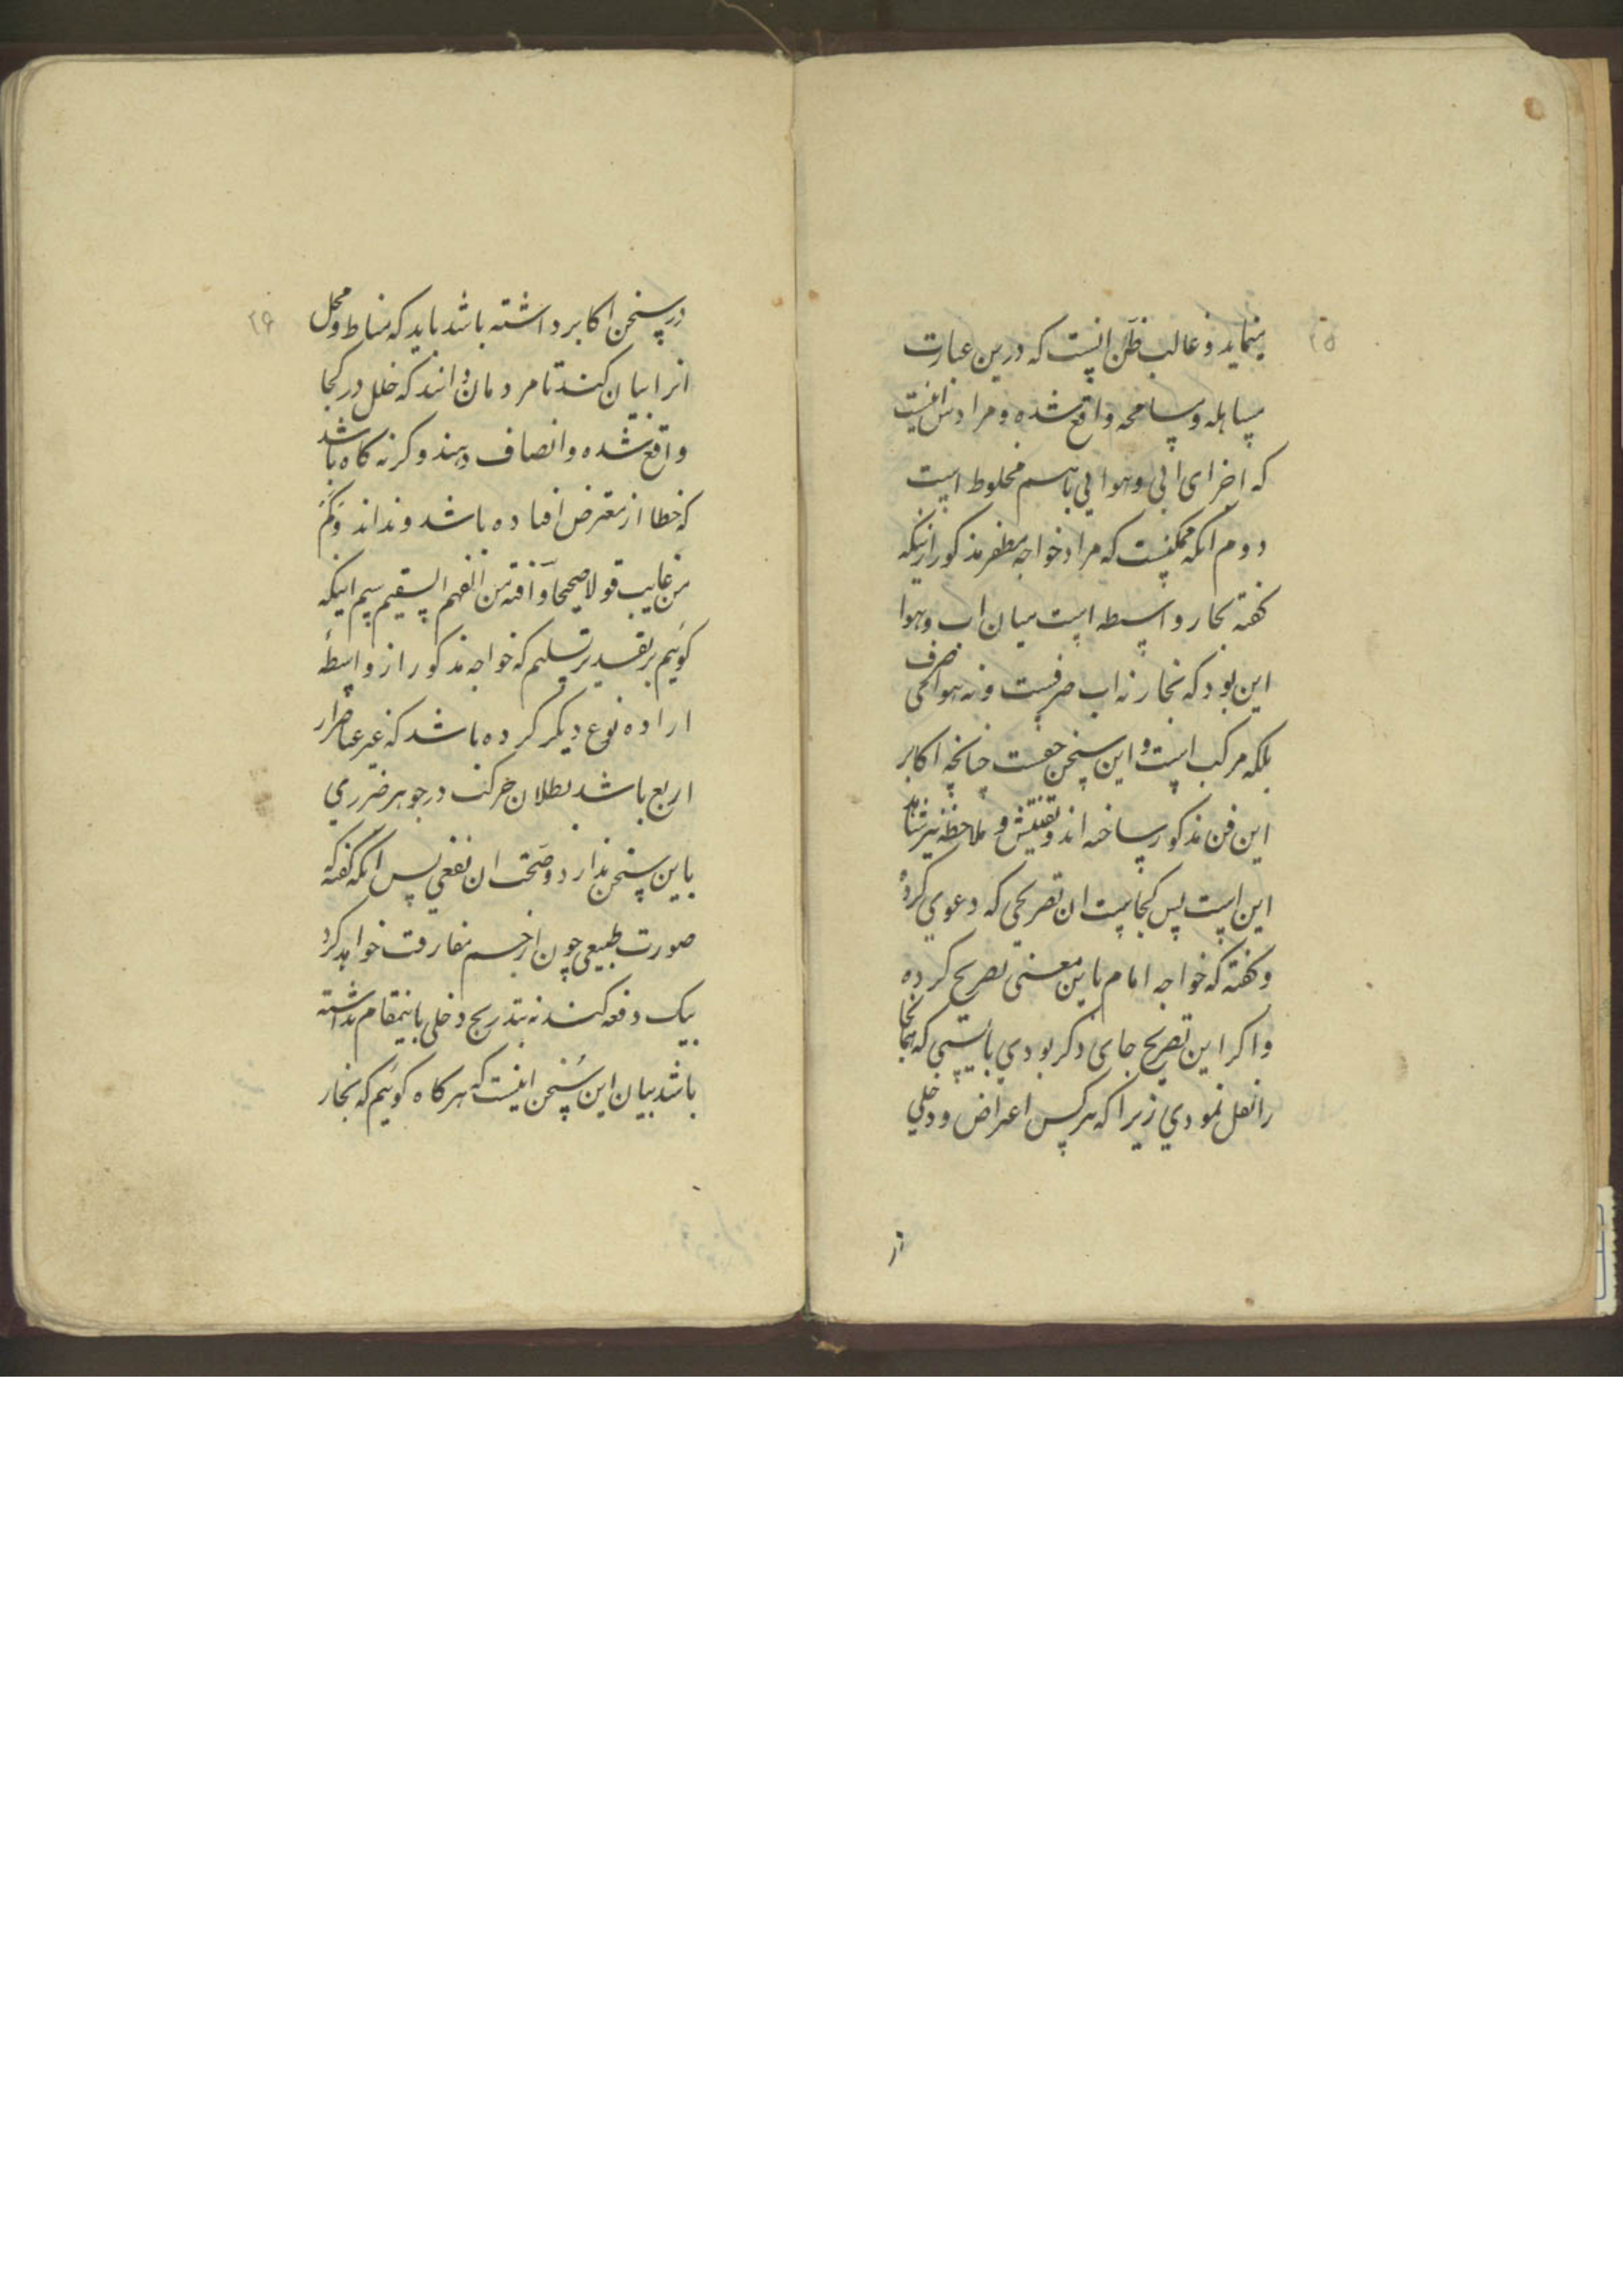 ۲۵
مینماید و غالب ظن انست که درین عبارت
مساهله و مسامحه واقع شده و مرادش انیست
که اجزای ابی و هوایی باهم مخلوط است
دوم انکه ممکنست که مراد خواجه مظفر مذکور ازینکه
کفته بخار واسطه است میان اب و هوا
این بود که بخار نه اب صرفست و نه هوا صرف
بلکه مرکب است و این سخن حقست چنانچه اکابر
این فن مذکور ساخته اند و تفتیش و ملاحظه نیز
این است پس کجاست ان تصریحی که دعوی کرده
و کفته که خواجه امام باین معنی تصریح کرده
و اکر این تصریح جای دکر بودی بایستی که انجا
را نقل نمودی زیرا که هر کس اعتراض و دخلی
در
۲۶
در سخن اکابر داشته باشد باید که مناط و محل
انرا بیان کند تا مردمان دانند که خلل در کجا
واقع شده و انصاف دهند و کرنه کاه باشد
که خطا از معترض افتاده باشد و نداند وَکَم
من غایب قولا صحیحا وَآفته من الفهم السقیم سیم اینکه
کوئیم بر تقدیر تسلیم که خواجه مذکور از واسطه
اراده نوع دیکر کرده باشد که غیر عناصر
اربع باشد بطلان حرکت در جوهر ضرری
باین سخن ندارد و صحت ان نفعی پس انکه کفته
صورت طبیعی چون از جسم مفارقت خواهد کرد
بیک دفعه کند نه بتدریج دخلی باینمقام نداشته
باشد بیان این سُخن اینست که هرکاه کوئیم که بخار